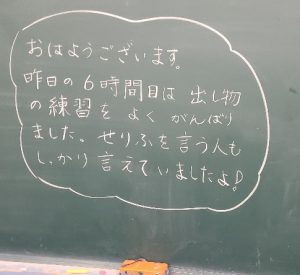 おはようございます。
昨日の6時間目は 出し物
の練習を よく がんばり
ました。せりふを言う人も
しっかり 言えていましたよ!